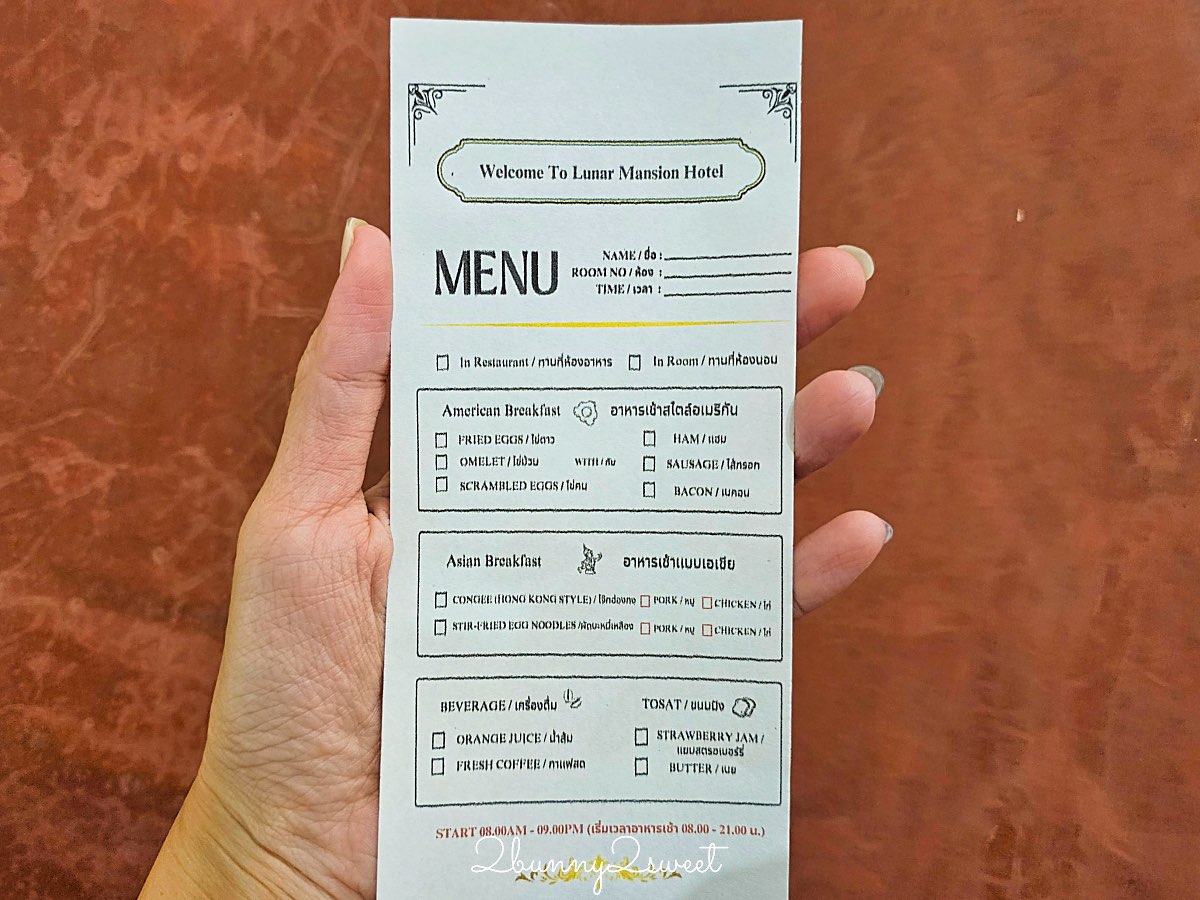 Welcome To Lunar Mansion Hotel
MENU
NAME / ชื่อ :
ROOM NO / ห้อง :
TIME / เวลา :
In Restaurant / ทานที่ห้องอาหาร In Room / ทานที่ห้องนอน
American Breakfast อาหารเช้าสไตล์อเมริกัน
FRIED EGGS / ไข่ดาว HAM / แฮม
OMELET / ไข่ม้วน WITH / กับ SAUSAGE / ไส้กรอก
SCRAMBLED EGGS / ไข่คน BACON / เบคอน
Asian Breakfast อาหารเช้าแบบเอเชีย
CONGEE (HONG KONG STYLE) / โจ๊กฮ่องกง PORK / หมู CHICKEN / ไก่
STIR-FRIED EGG NOODLES /ผัดบะหมี่เหลือง PORK / หมู CHICKEN / ไก่
BEVERAGE / เครื่องดื่ม TOSAT / ขนมปัง
ORANGE JUICE / น้ำส้ม STRAWBERRY JAM /
แยมสตรอเบอร์รี่
FRESH COFFEE / กาแฟสด BUTTER / เนย
START 08.00AM - 09.00PM (เริ่มเวลาอาหารเช้า 08.00 - 21.00 น.)
2bunny2sweet